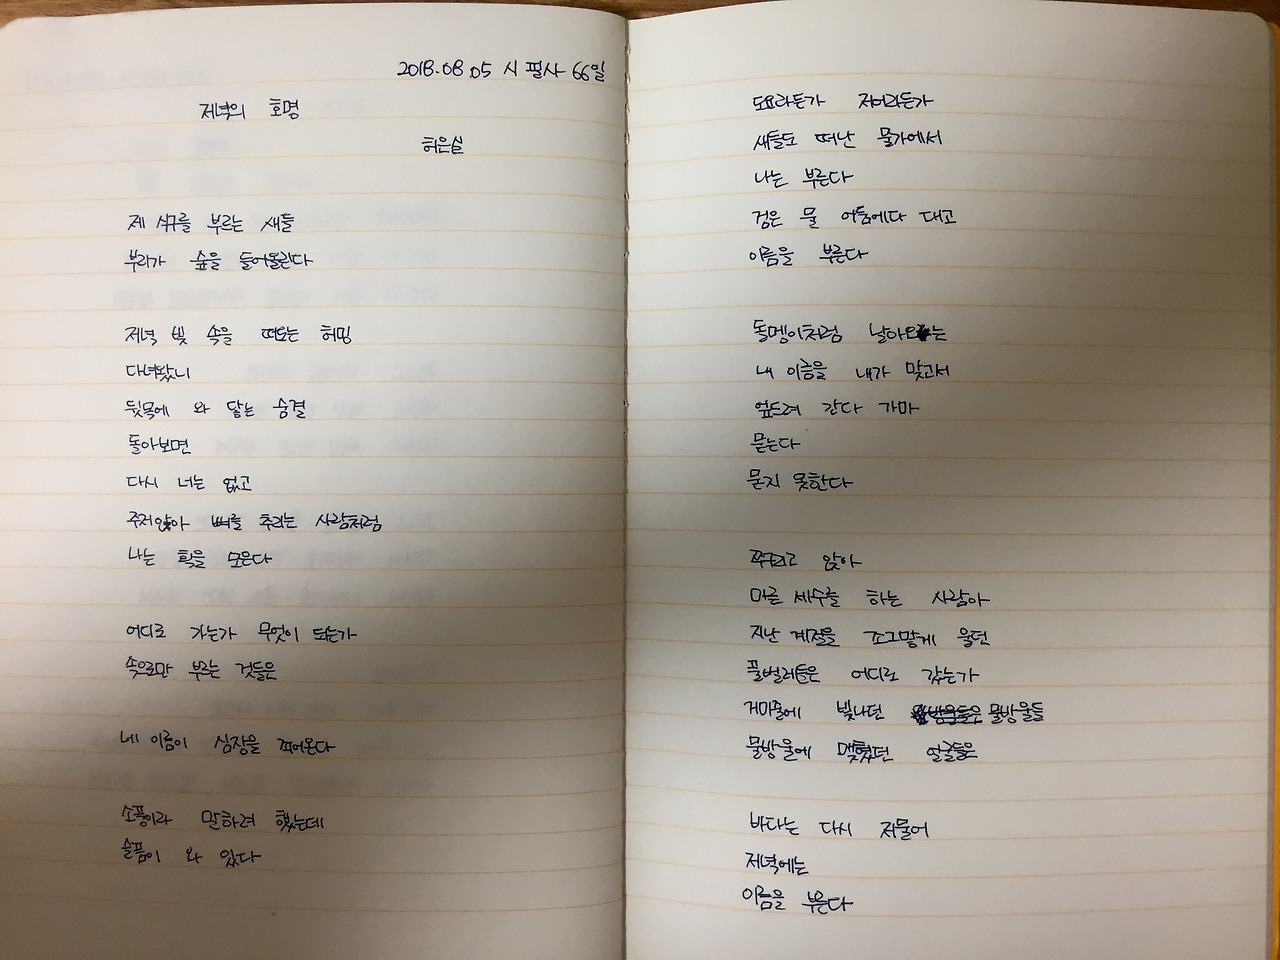 2018.08.05 시 필사 66일
저녁의 호명
허은실
제 식구를 부르는 새들
부리가 숲을 들어올린다
저녁 빛 속을 떠도는 허밍
다녀왔니
뒷목에 와 닿는 숨결
돌아보면
다시 너는 없고
주저앉아 뼈를 추리는 사람처럼
나는 획을 모은다
어디로 가는가 무엇이 되는가
속으로만 부르는 것들은
네 이름이 심장을 찌어온다
소풍이라 말하려 했는데
슬픔이 와 있다
도요라든가 저어라든가
새들도 떠난 물가에서
나는 부른다
검은 물 어둠에다 대고
이름을 부른다
돌멩이처럼 날아오는
내 이름을 내가 맞고서
엎드려 간다 가마
묻는다
묻지 못한다
쭈그리고 앉아
마른 세수를 하는 사람아
지난 계절을 조그맣게 울던
풀벌레들은 어디로 갔는가
거미줄에 빛나던 물방울들
물방울에 맺혔던 얼굴들은
바다는 다시 저물어
저녁에는
이름을 부른다